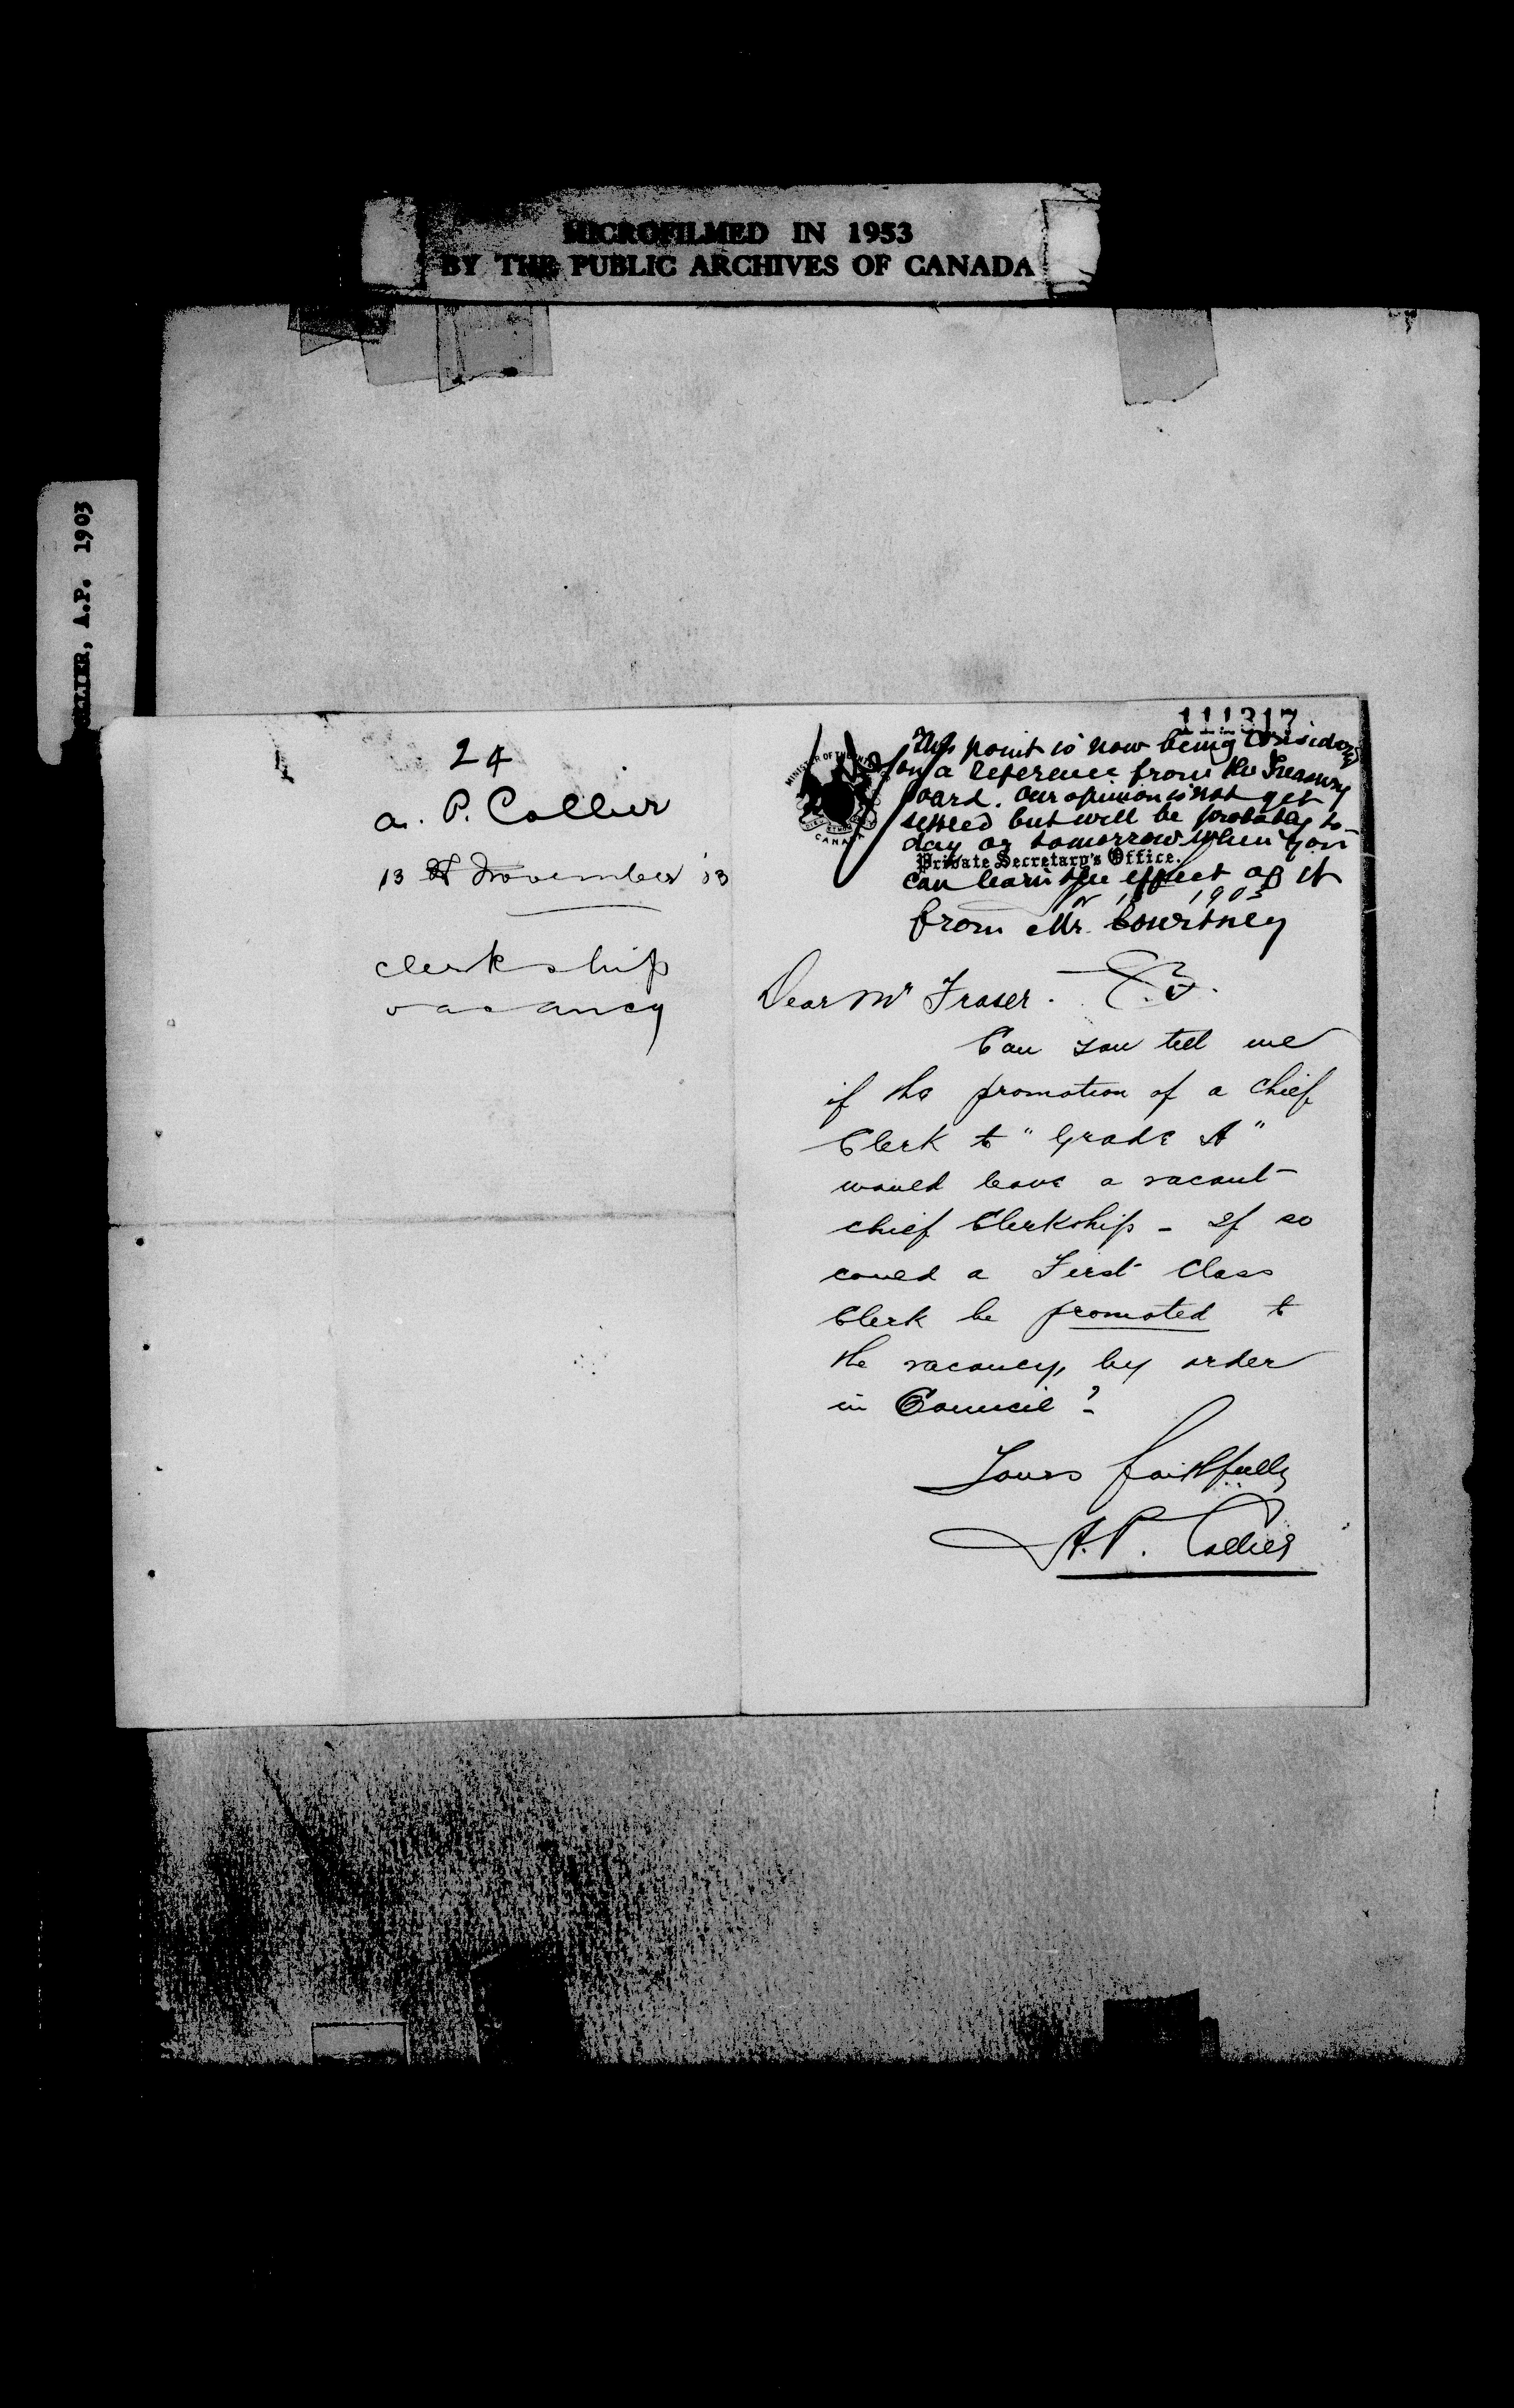 MICROFILMED IN 1953
BY THE PUBLIC ARCHIVES OF CANADA
COLLIER, A.P. 1903
24
A. P. Collier
13 November 03
clerkship
vacancy
111317
This point is now being considered
on a reference from the Treasury
Board. Our opinion is not yet
settled but will be probably to-
day or tomorrow when you
Private Secretary's Office.
can learn the effect of it
1903
from Mr. Courtney
MINISTER OF THE
CANADA
Dear Mr Fraser.
Can you tell me
if the promotion of a Chief
Clerk to "Grade A"
would leave a vacant
chief Clerkship - If so
could a First Class
Clerk be promoted to
the vacancy, by order
in Council?
Yours faithfully
A.P. Collier